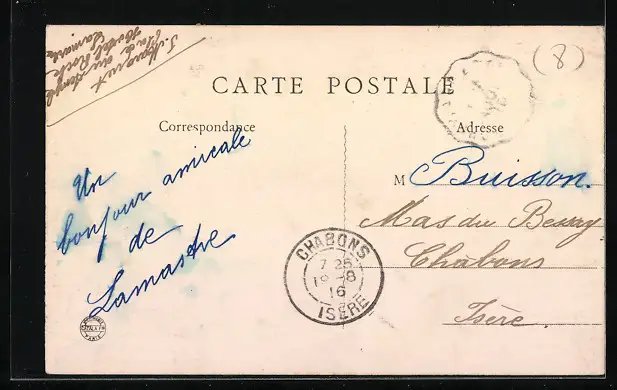 CARTE POSTALE
Correspondance
Adresse
(8)
Un
bonjour amicale
de
Lamastre
M Buisson.
Mas du Bessay
Chabons
Isère.
CHABONS
7 25
19 -8
16
ISÈRE